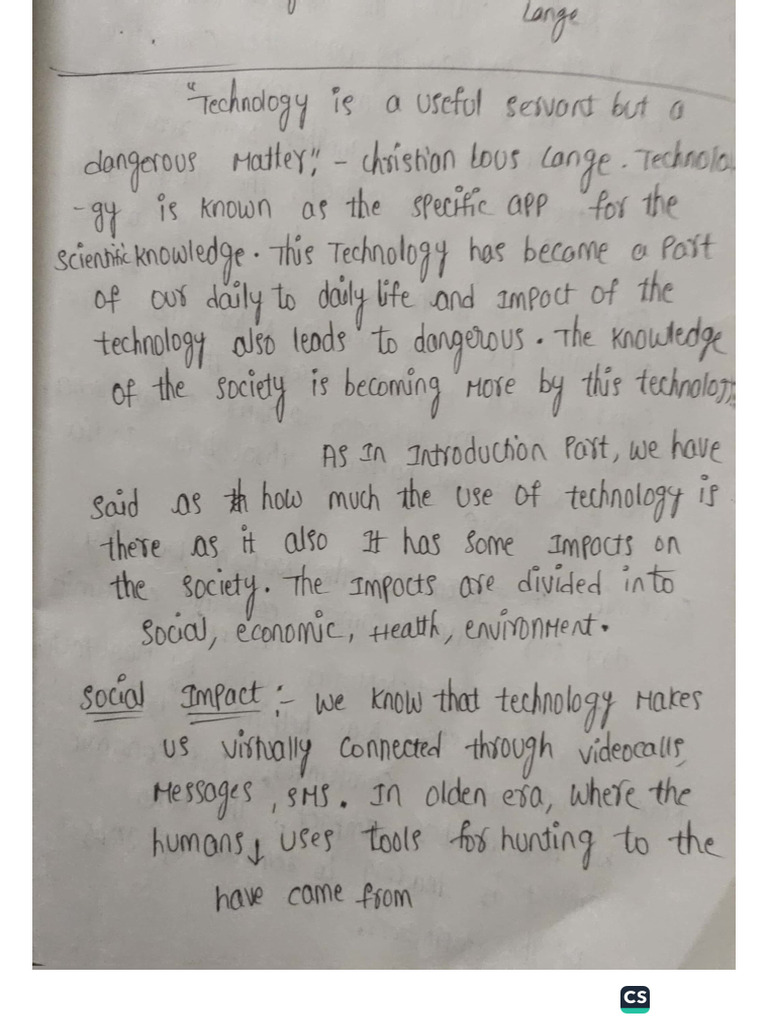 Lange
"Technology is a useful servant but a
dangerous Matter", - christian Lous Lange. Technolo
-gy is known as the specific app for the
scientific knowledge. This Technology has become a Part
of our daily to daily life and impact of the
technology also leads to dangerous. The knowledge
of the society is becoming More by this technology
As In Introduction Part, we have
said as th how much the use of technology is
there as it also It has some Impacts on
the society. The Impacts are divided into
social, economic, Health, environMent.
Social Impact :- we know that technology Makes
us virtually connected through videocalls,
Messages, SMS. In olden era, where the
humans uses tools for hunting to the
have came from
CS